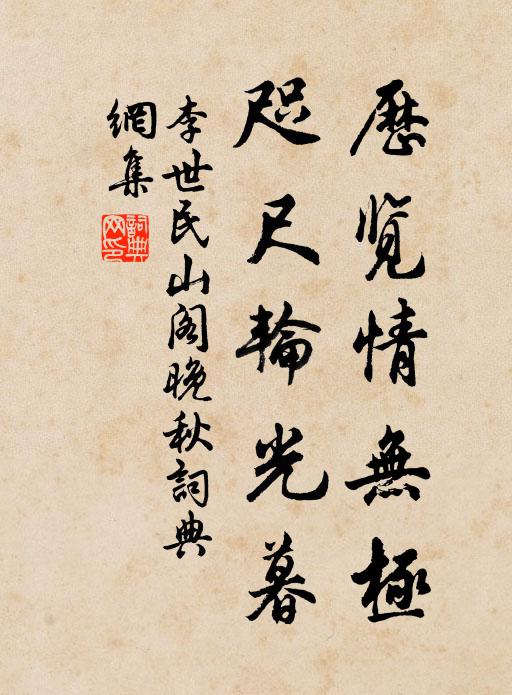 歷覽情無極
咫尺輪光暮
李世民山閣晚秋詞典
網集
詞典
网印